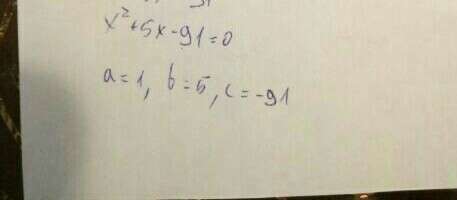 x²+5x-91=0
a=1, b=5, c=-91